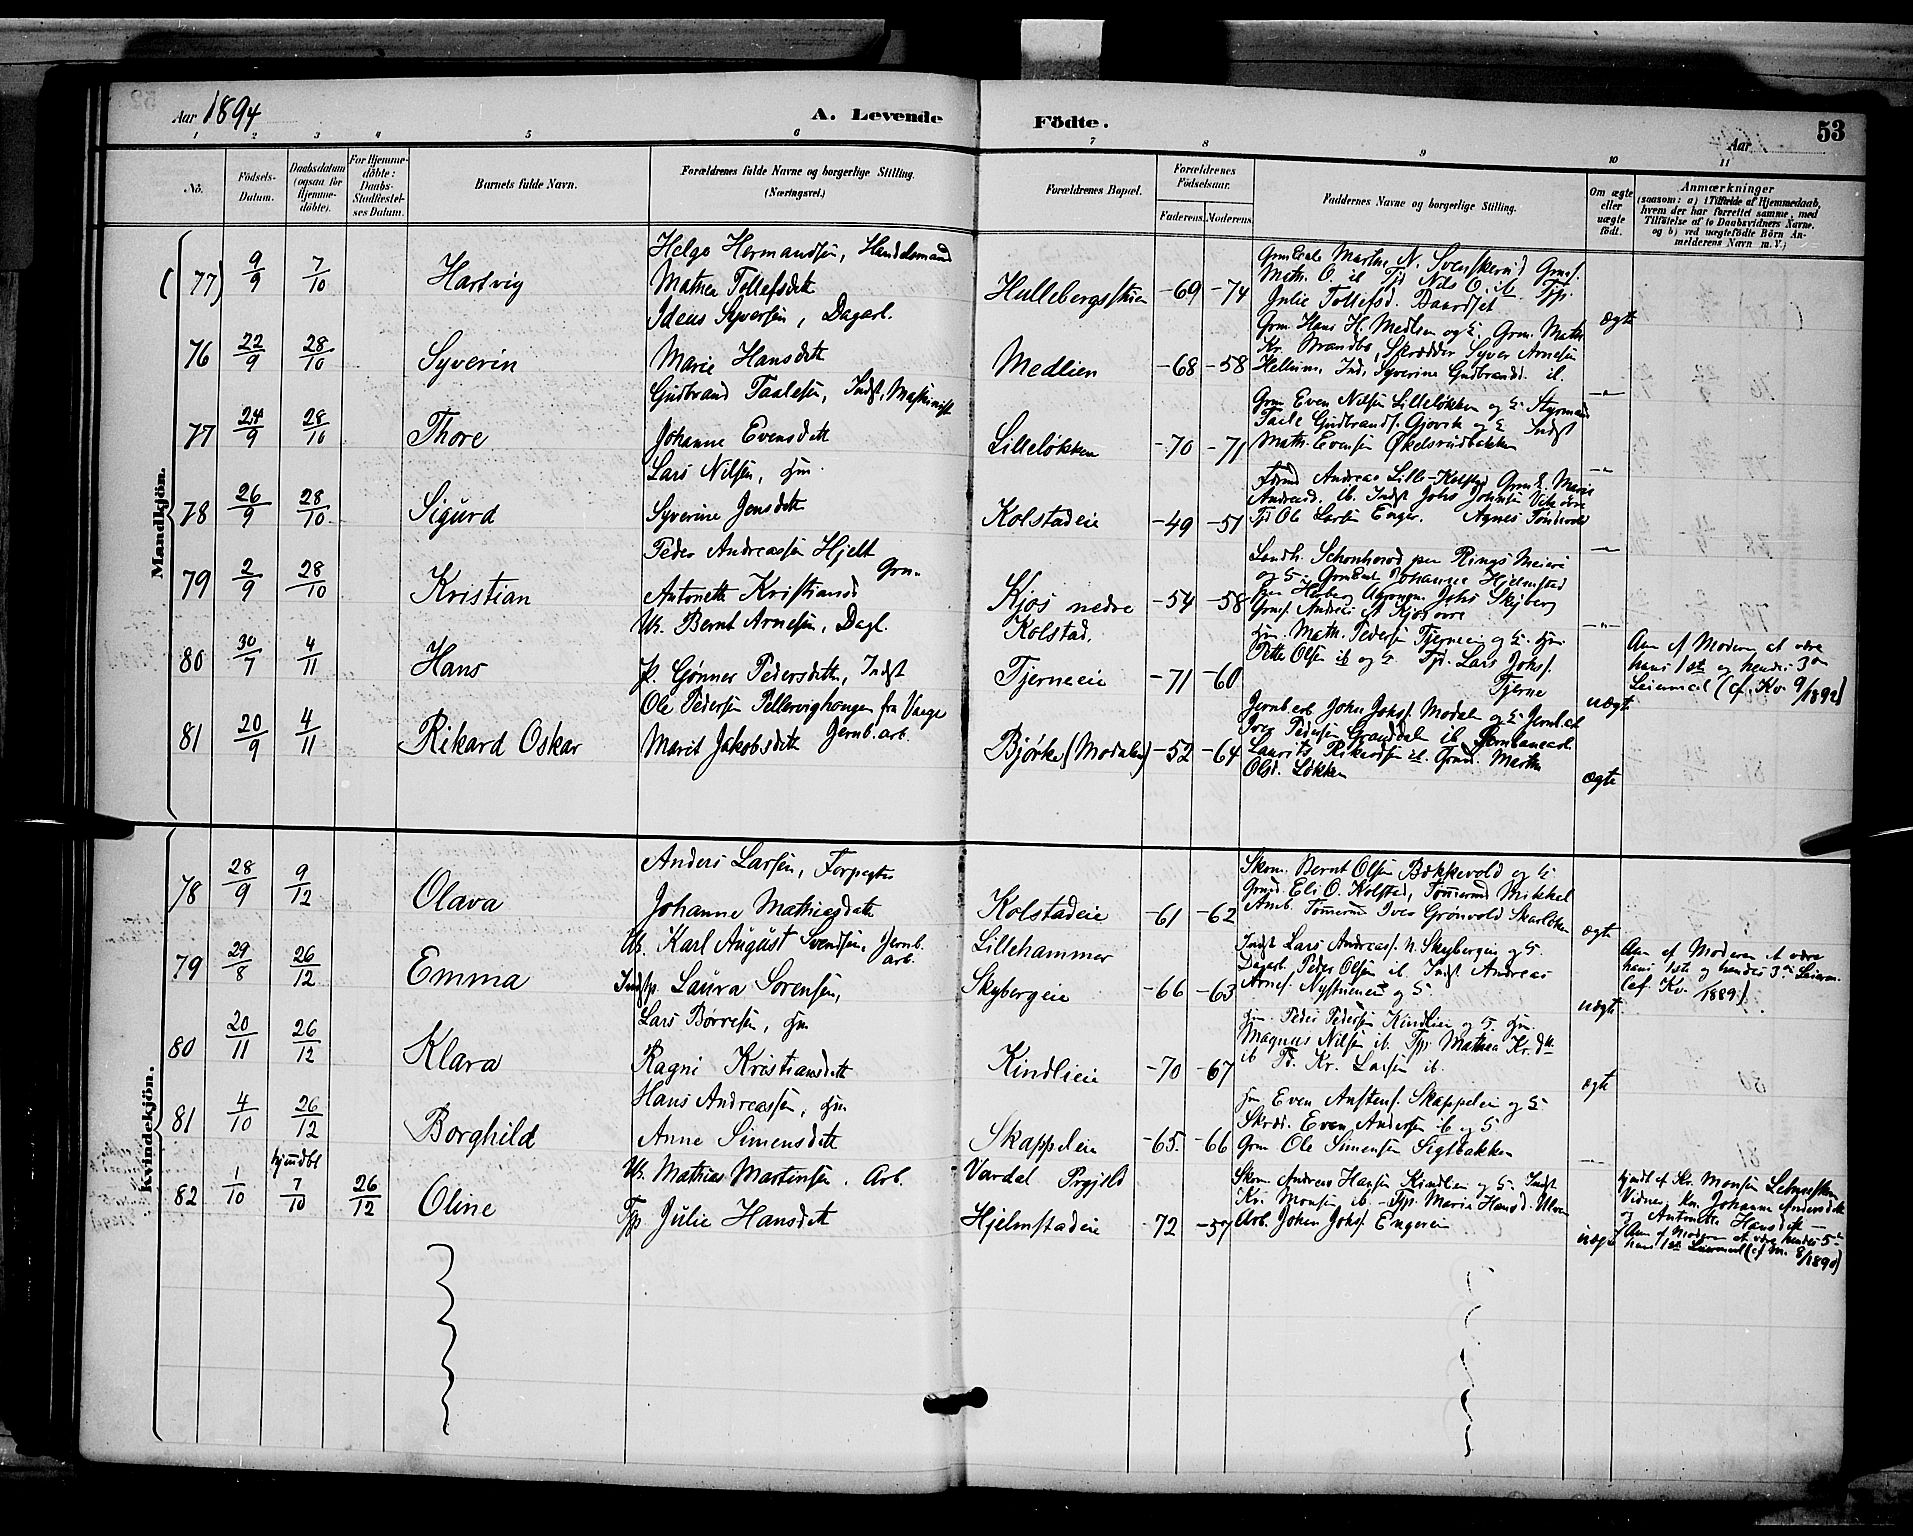 Aar 1894
A. Levende Födte.
53
Aar
1 2 3 4 5 6 7 8 9 10 11
No.
Födsels-Datum.
Daabsdatum (ogsaa for Hjemme-döbte).
For Hjemme-döbte: Daabs-Stadfæstel-ses Datum.
Barnets fulde Navn.
Forældrenes fulde Navne og borgerlige Stilling. (Næringsvei.)
Forældrenes Bopæl.
Forældrenes Födselsaar.
Faderens. Moderens.
Faddernes Navne og borgerlige Stilling.
Om ægte eller uægte födt.
Anmærkninger
(saasom: a) i Tilfælde af Hjemmedaab,
hvem der har forrettet samme, med
Tilföielse af to Daabsvidners Navne,
og b) ved uægtefödte Börn An-
melderens Navn m. V.)
Mandkjön.
(77) 9/9 7/10 Hartvig
Helge Hermandsen, Handelsmand
Mathea Tollefsdatt
Hullebergsstuen -69 -74
Julie Tollefsd. Baardset
ægte
76 22/9 28/10 Syverin
Ideus Syversen, Dagarb.
Marie Hansdatt
Medlien -68 -58
Grm. Hans H. Medlien og h. Grm. Math
Kr. Strandbo, Skrædder Syver Arnesen
Hellum, Ind. Syverine Gudbrandsd. ib.
-"-
77 24/9 28/10 Thore
Gudbrand Taalesen, Indst, Maskinist
Johanne Evensdatt
Lilleløkken -70 -71
Grm Even Nilsen Lilleløkken og h. Styrmand
Taale Gudbrands. Gjøvik og h. Indst
Math. Evensen Økelsrudbakken
-"-
78 26/9 28/10 Sigurd
Lars Nilsen, Hm.
Syverine Jensdatt
Kolstadeie -49 -51
Andreas Lille-Kolstad Grmk. Marie
Andreasd. ib. Indst Johs Johnsen
Tjd Ole Larsen Enger. Agnes
-"-
79 2/9 28/10 Kristian
Peder Andreassen Hjelt Grm.
Antonette Kristiansd
Kjos nedre -54 -58
Landh. Schonhorod per Rings Meieri
Johannes Hjelmstad
Johs Skyberg
Andrea A Kjos øvre
-"-
80 30/7 4/11 Hans
Uk. Bernt Arnesen, Dagl.
P. Gønner Pedersdatt, Indst
Kolstad.
Tjerneeie -71 -60
Hm. Math. Pedersen Tjerneeie og h. Hm.
Petter Olsen ib og h. Tjd. Lars Johs.
Tjerne
uægte
Anm. af Moderen at være
hans 1ste og hendes 3die
Leiermaal (cf. Kv. 9/1892)
81 20/9 4/11 Rikard Oskar
Ole Pedersen Pellervighaugen fra Vaage
Marit Jakobsdatt Jernb. arb.
Bjørke (Modalen) -52 -64
Jernb. arb Johan Johs. Modalen og h. Jernb. arb
Iver Pedersen Granddalen ib. Jernbanearb.
Laurits Rikardsen ib. Grmd. Marthe
Olsd. Løkken
ægte
Kvindekjön.
78 28/9 9/12 Olava
Anders Larsen, Forpagter
Johanne Mathiasdatt
Kolstadeie -61 -62
Skom. Bernt Olsen Bækkevold og h.
Grmd. Eli O. Kolstad, Tømmermd Mikkel
Amb. Tømmermd Iver Grønvold Skarløkken
ægte
79 29/8 26/12 Emma
Uk. Karl August Svendsen, Jernb. arb.
Indstp. Laura Sorensen,
Lillehammer
Skybergeie -66 -63
Indst Lars Andreas. N. Skybergeie og h.
Dagarb. Peder Olsen ib. Indst Andreas
Arnes. Nystuen og h.
uægte
Anm. af Moderen at være
hans 1ste og hendes 3die Leierm.
(cf. Kv. /1889)
80 20/11 26/12 Klara
Lars Børresen, Hm
Ragni Kristiansdatt
Kindlieie -70 -67
Hm. Peder Pedersen Kindlieie og h. Hm.
Magnus Nilsen ib. Tjp. Mathea Kr.dtt
ib Td. Kr. Larsen ib.
ægte
81 4/10 26/12 Borghild
Hans Andreassen, Hm
Anne Simensdatt
Skappeleie -65. -66
Hm Even Anstens. Skappeleie og h.
Skræd. Even Andersen ib og h
Grm Ole Simensen Sigtbakken
-"-
82 1/10 hjmdbt 7/10 26/12 Oline
Uk. Mathias Martinsen. Arb.
Tjp Julie Hansdatt
Vardal Prgjeld
Hjelmstadeie -72 -57
Skom. Andreas Hansen Kindlien og h. Indst
Kr. Monsen ib. - Tjp. Maria Hansd. Ulven
Arb. Johan Johs. Engereie
uægte
hjmdt af Kr. Monsen
Vidner, Kone Johanne Andersdatt
og Antonette Hansdatt -
Anm. af Moderen at være hendes 5te
hans 1ste Leiermaal (cf. M. 8/1890)